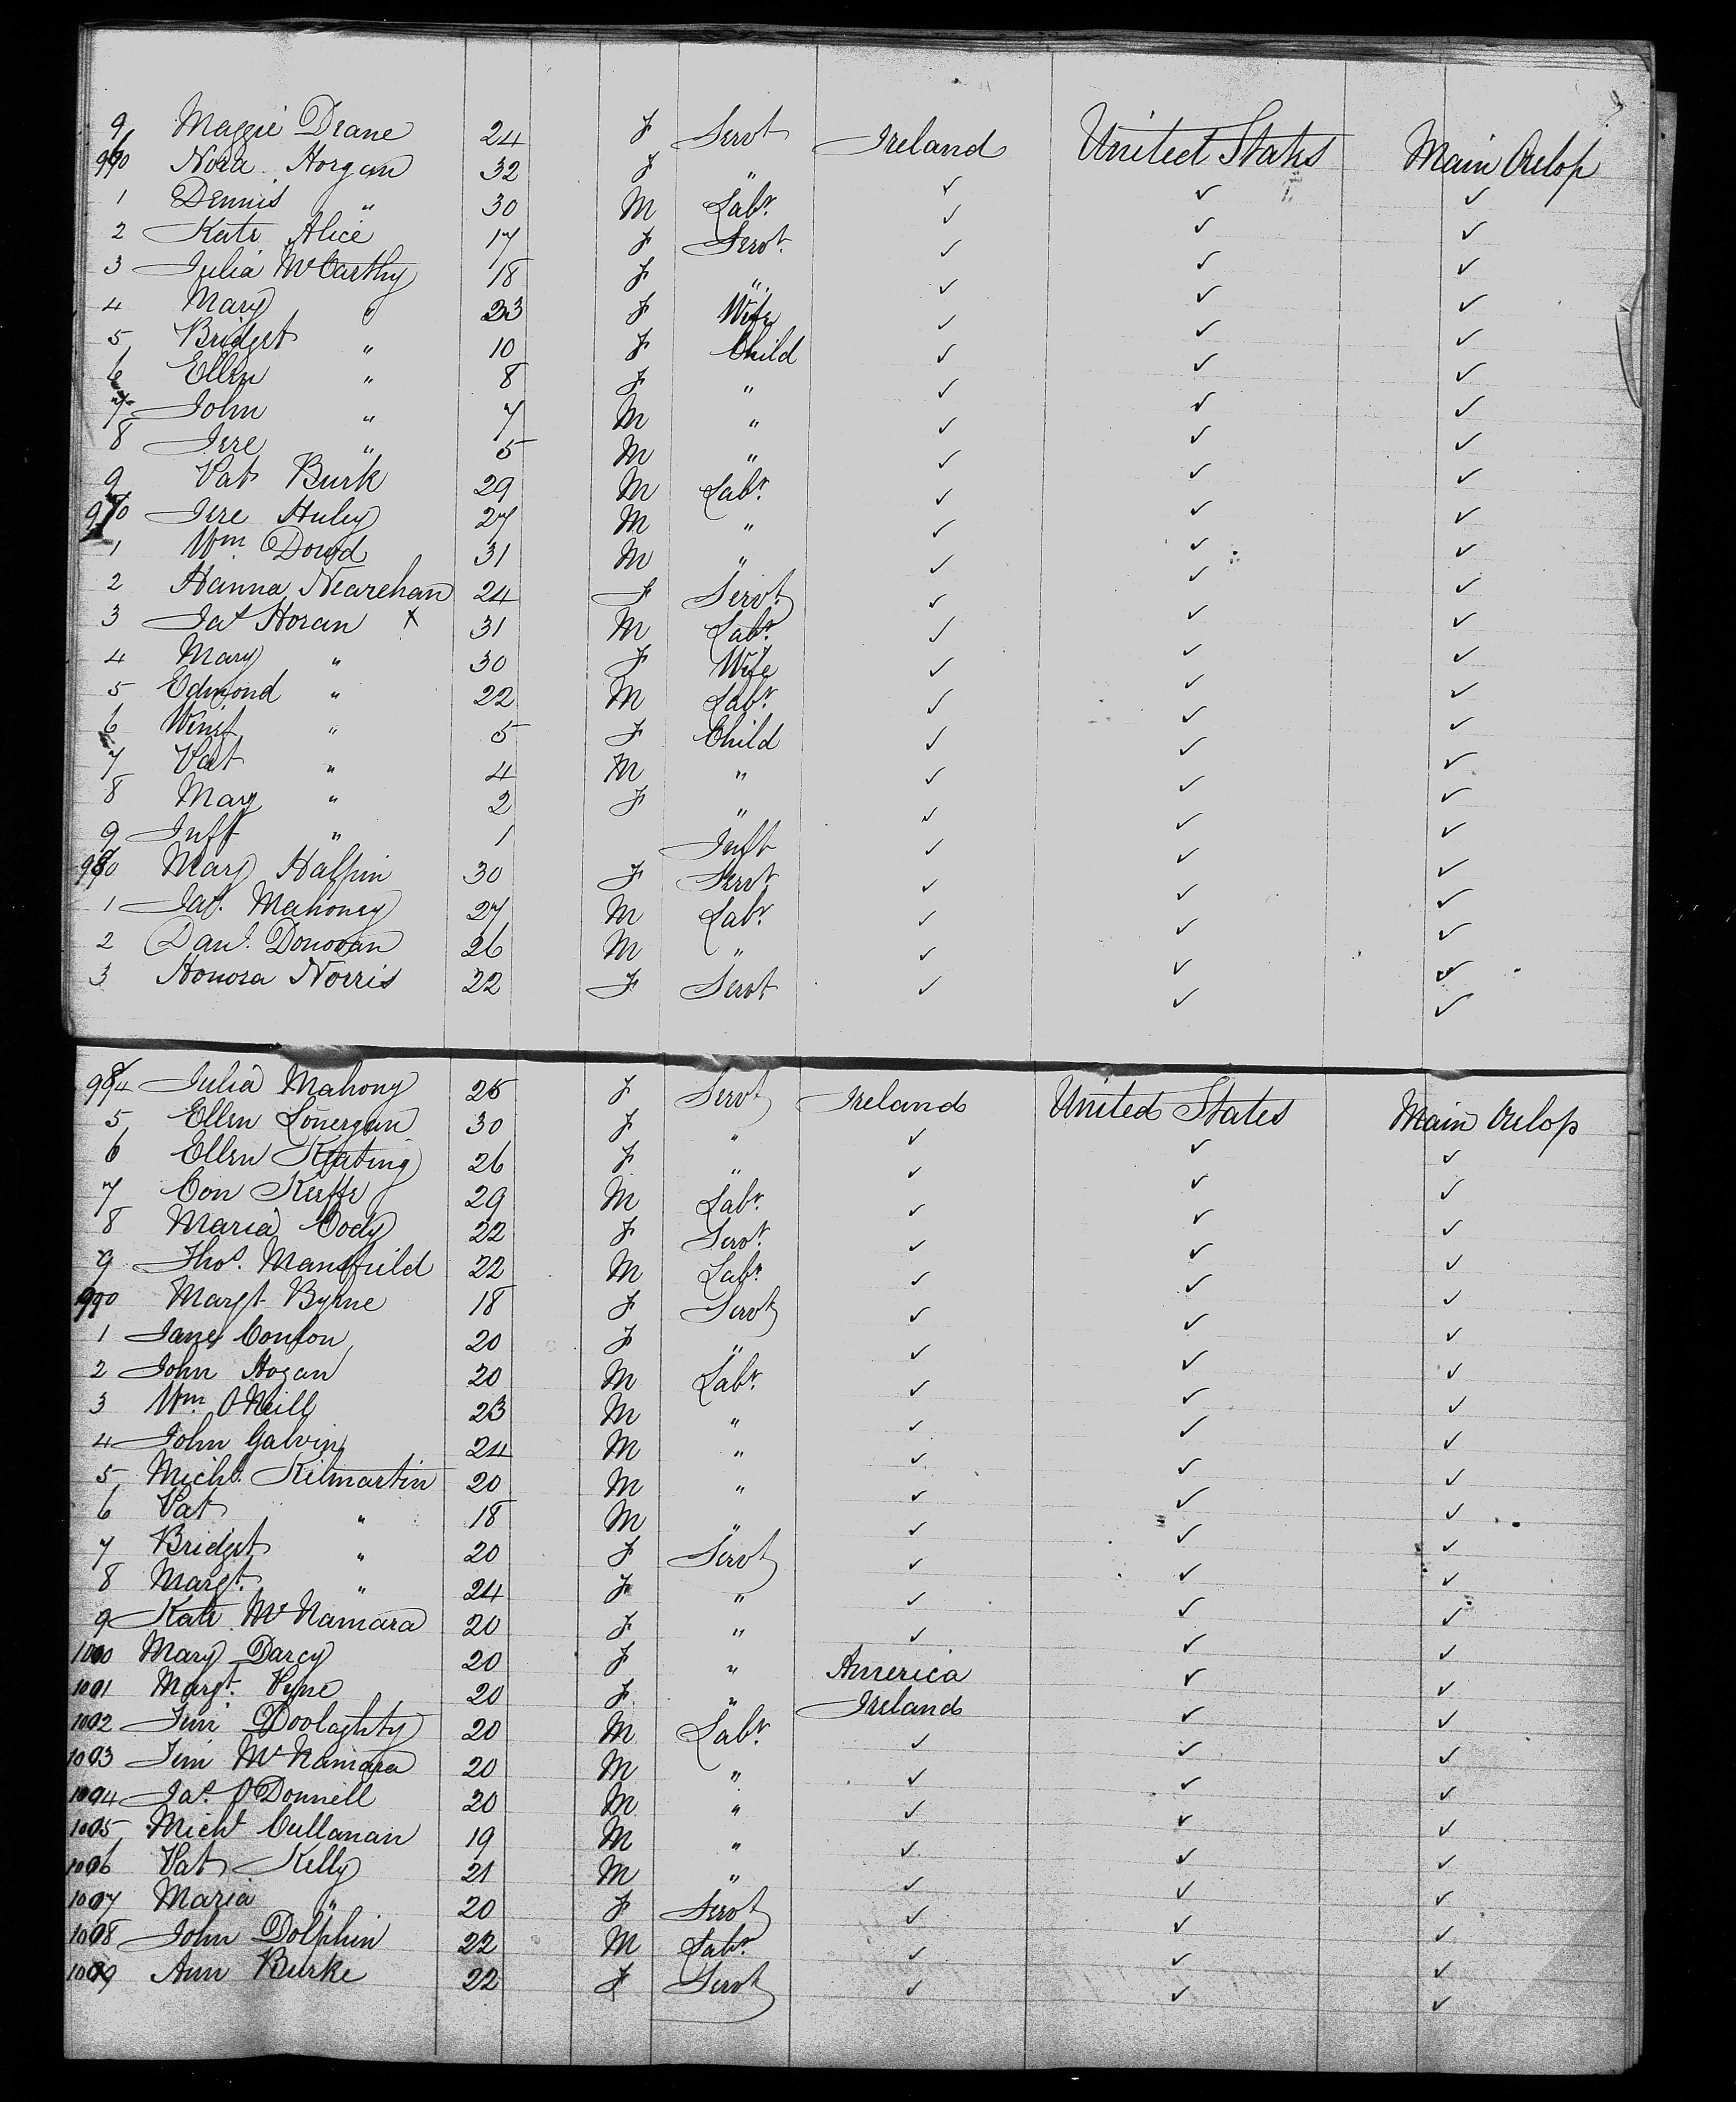 9 Maggie Deane 24 F Servt Ireland United States Main Orlop
960 Nora Horgan 32 F " ✓ ✓ ✓
1 Dennis " 30 M Labr. ✓ ✓ ✓
2 Kate Alice 17 F Servt. ✓ ✓ ✓
3 Julia McCarthy 18 F " ✓ ✓ ✓
4 Mary " 23 F Wife ✓ ✓ ✓
5 Bridget " 10 F Child ✓ ✓ ✓
6 Ellen " 8 F " ✓ ✓ ✓
7 John " 7 M " ✓ ✓ ✓
8 Jere " 5 M " ✓ ✓ ✓
9 Pat Burk 29 M Labr. ✓ ✓ ✓
970 Jere Huley 27 M " ✓ ✓ ✓
1 Wm Dowd 31 M " ✓ ✓ ✓
2 Hanna Nearehan 24 F Servt. ✓ ✓ ✓
3 Jas Horan x 31 M Labr. ✓ ✓ ✓
4 Mary " 30 F Wife ✓ ✓ ✓
5 Edmond " 22 M Labr. ✓ ✓ ✓
6 Winf " 5 F Child ✓ ✓ ✓
7 Pat " 4 M " ✓ ✓ ✓
8 Mary " 2 F " ✓ ✓ ✓
9 Inft " 1 Inft ✓ ✓ ✓
980 Mary Halpin 30 F Servt ✓ ✓ ✓
1 Jas. Mahoney 27 M Labr. ✓ ✓ ✓
2 Danl. Donovan 26 M " ✓ ✓ ✓
3 Honora Norris 22 F Servt ✓ ✓ ✓
984 Julia Mahony 25 F Servt Ireland United States Main Orlop
5 Ellen Lonergan 30 F " ✓ ✓ ✓
6 Ellen Keating 26 F " ✓ ✓ ✓
7 Con Keeffe 29 M Labr. ✓ ✓ ✓
8 Maria Cody 22 F Servt. ✓ ✓ ✓
9 Thos. Mansfield 22 M Labr. ✓ ✓ ✓
990 Margt Byrne 18 F Servt ✓ ✓ ✓
1 Jane Conlon 20 F " ✓ ✓ ✓
2 John Hogan 20 M Labr. ✓ ✓ ✓
3 Wm. O'Neill 23 M " ✓ ✓ ✓
4 John Galvin 24 M " ✓ ✓ ✓
5 Michl. Kilmartin 20 M " ✓ ✓ ✓
6 Pat " 18 M " ✓ ✓ ✓
7 Bridget " 20 F Servt ✓ ✓ ✓
8 Margt. " 24 F " ✓ ✓ ✓
9 Kate McNamara 20 F " ✓ ✓ ✓
1000 Mary Darcy 20 F " America ✓ ✓
1001 Margt. Pyne 20 F " Ireland ✓ ✓
1002 Jim Doolaghty 20 M Labr. ✓ ✓ ✓
1003 Jim McNamara 20 M " ✓ ✓ ✓
1004 Jas. O'Donnell 20 M " ✓ ✓ ✓
1005 Michl Cullanan 19 M " ✓ ✓ ✓
1006 Pat Kelly 21 M " ✓ ✓ ✓
1007 Maria " 20 F Servt ✓ ✓ ✓
1008 John Dolphin 22 M Labr. ✓ ✓ ✓
1009 Ann Burke 22 F Servt ✓ ✓ ✓